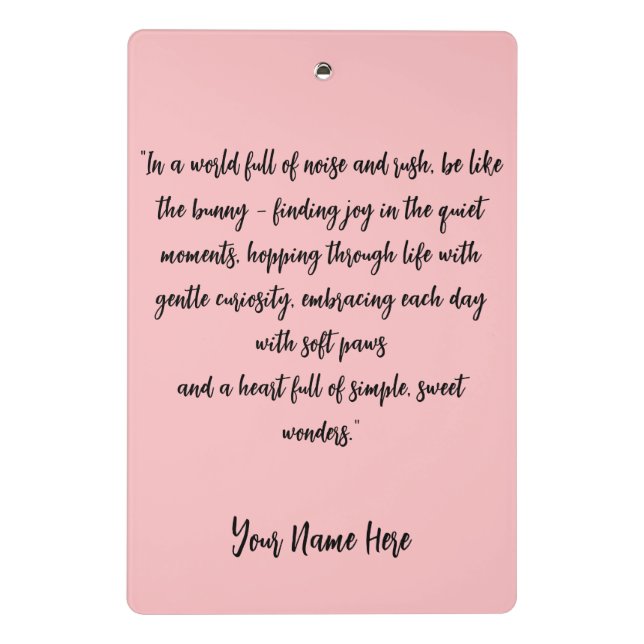 "In a world full of noise and rush, be like
the bunny - finding joy in the quiet
moments, hopping through life with
gentle curiosity, embracing each day
with soft paws
and a heart full of simple, sweet
wonders."
Your Name Here